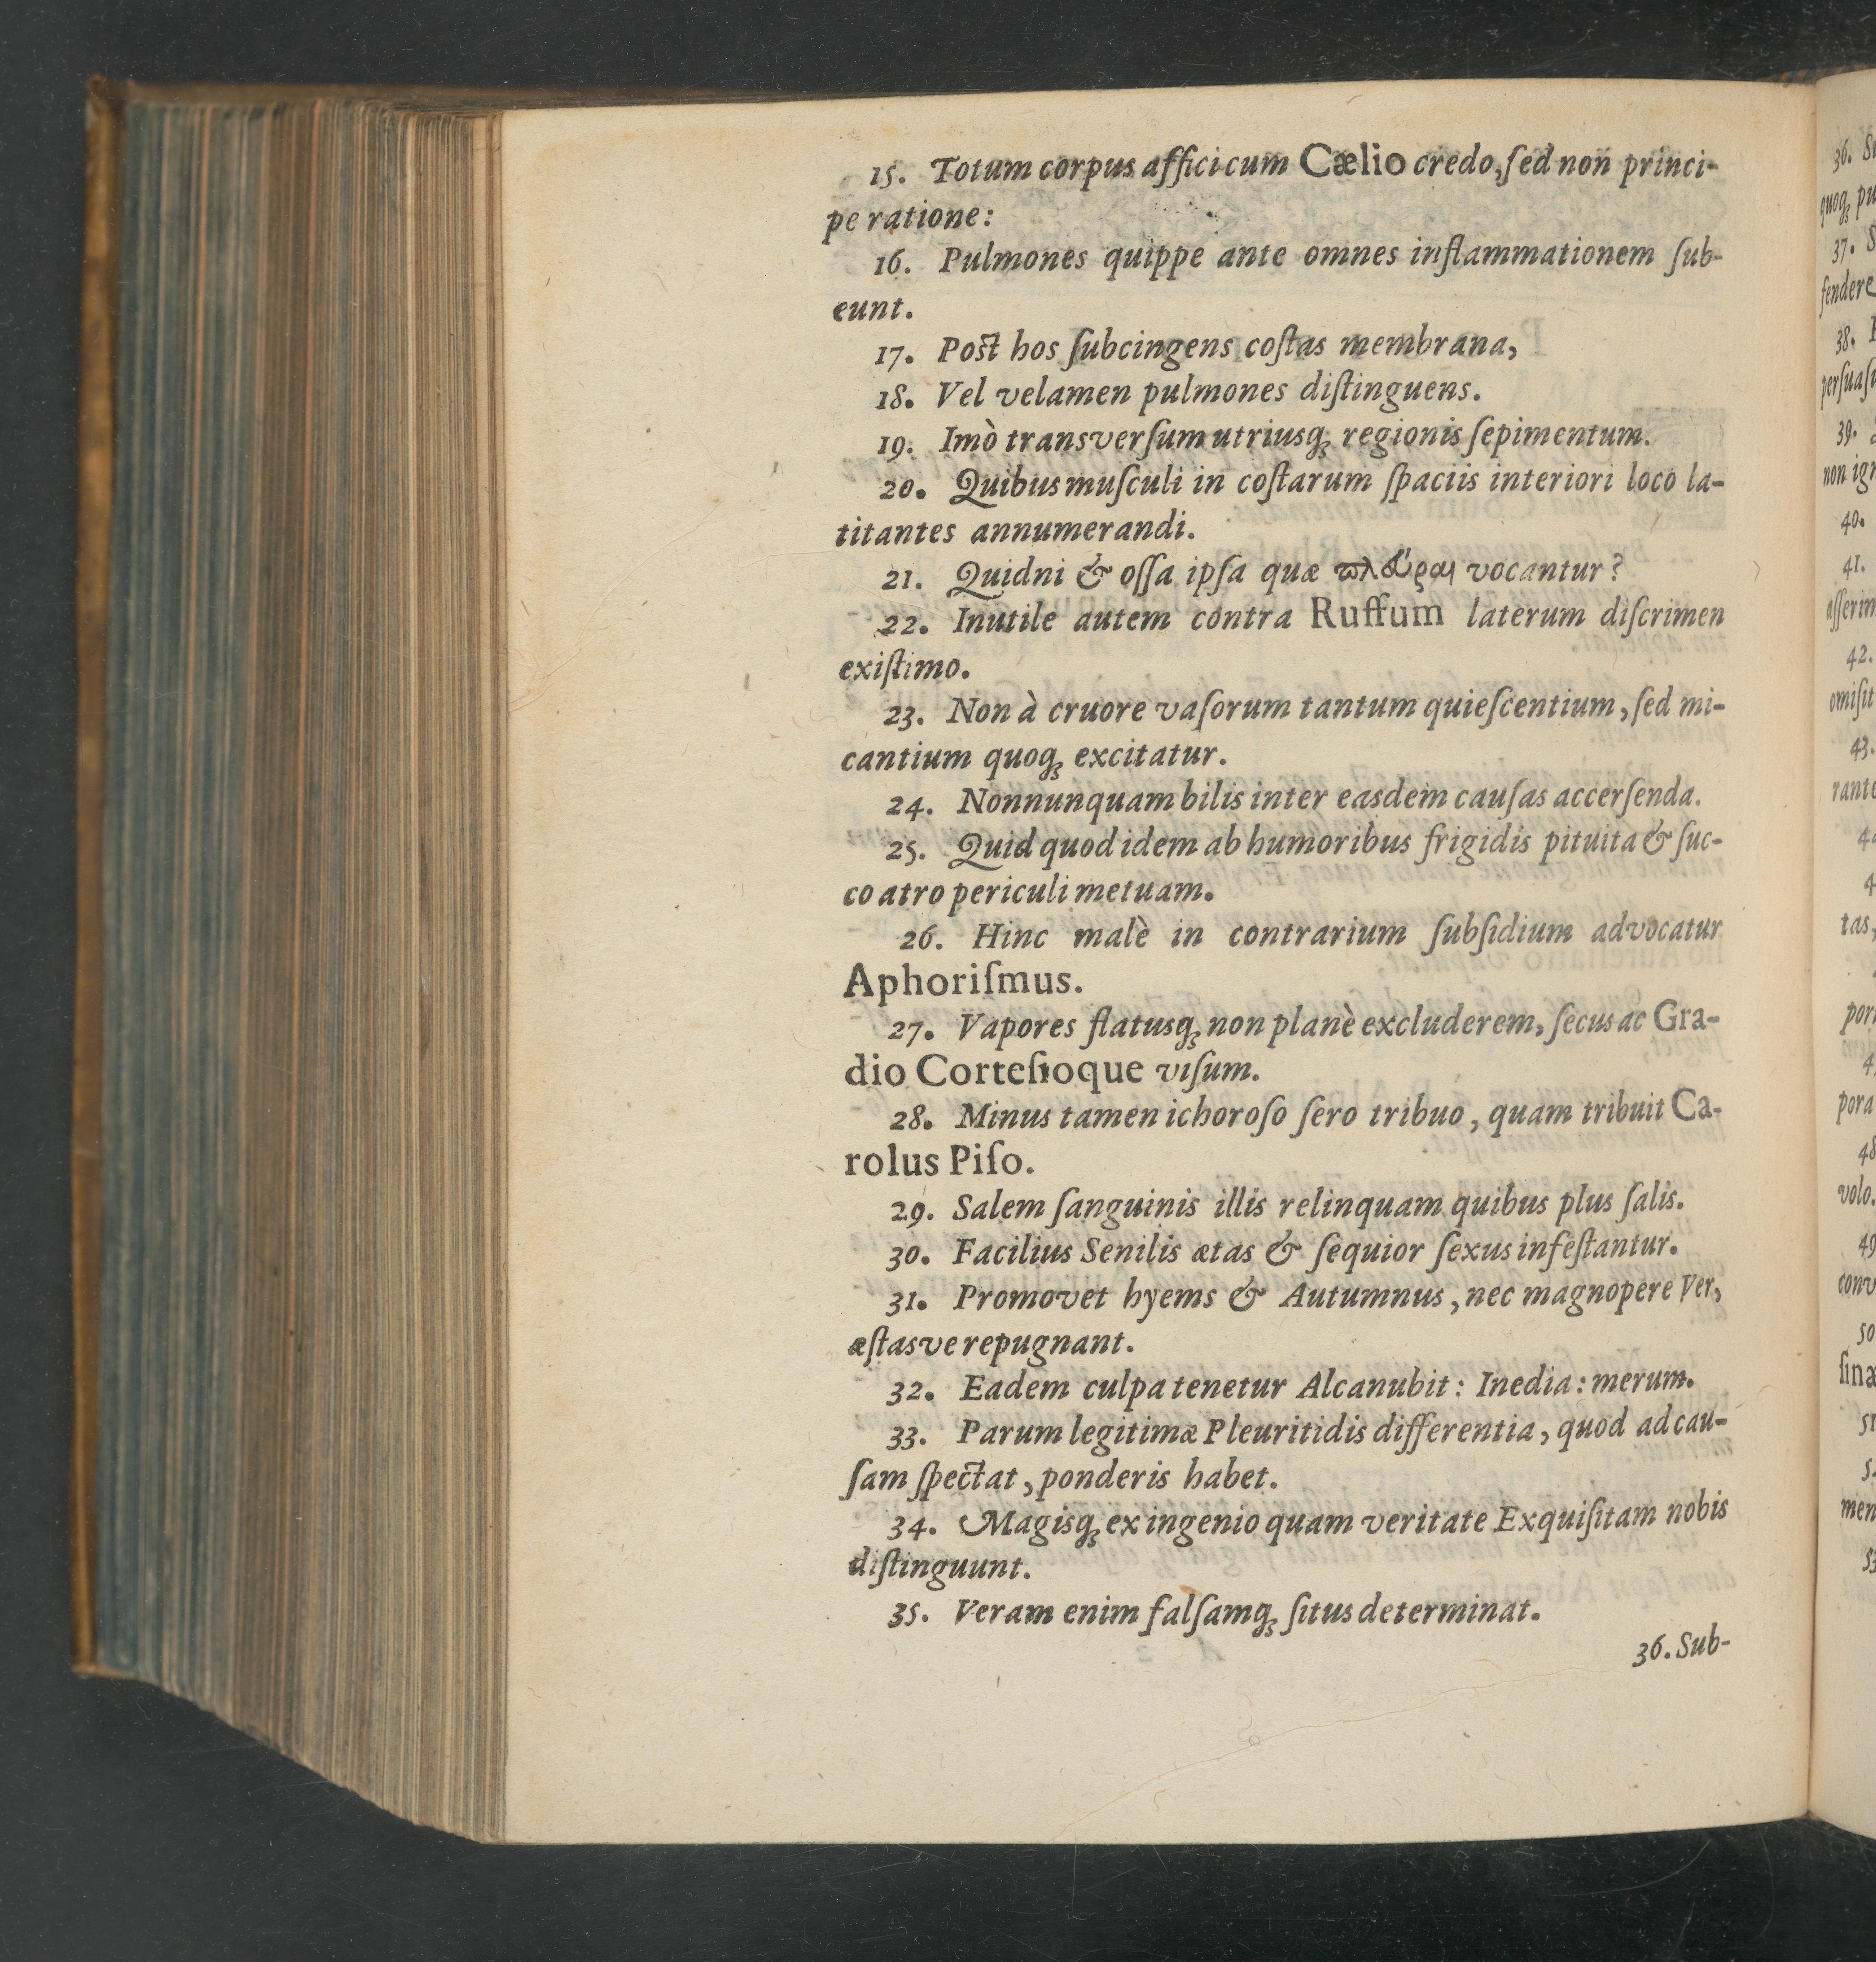 15. Totum corpus affici cum Cælio credo, ſed non princi-
pe ratione:
16. Pulmones quippe ante omnes inflammationem ſub-
eunt.
17. Poſt hos ſubcingens coſtas membrana,
18. Vel velamen pulmones diſtinguens.
19. Imò transverſum utriusq́; regionis ſepimentum.
20. Quibus muſculi in coſtarum ſpaciis interiori loco la-
titantes annumerandi.
21. Quidni & oſſa ipſa quæ πλεῦραι vocantur?
22. Inutile autem contra Ruffum laterum diſcrimen
exiſtimo.
23. Non à cruore vaſorum tantum quieſcentium, ſed mi-
cantium quoq; excitatur.
24. Nonnunquam bilis inter easdem cauſas accerſenda.
25. Quid quod idem ab humoribus frigidis pituita & ſuc-
co atro periculi metuam.
26. Hinc malè in contrarium ſubſidium advocatur
Aphoriſmus.
27. Vapores flatusq; non planè excluderem, ſecus ac Gra-
dio Corteſioque viſum.
28. Minus tamen ichoroſo ſero tribuo, quam tribuit Ca-
rolus Piſo.
29. Salem ſanguinis illis relinquam quibus plus ſalis.
30. Facilius Senilis ætas & ſequior ſexus infeſtantur.
31. Promovet hyems & Autumnus, nec magnopere Ver,
æſtasve repugnant.
32. Eadem culpa tenetur Alcanubit: Inedia: merum.
33. Parum legitimæ Pleuritidis differentia, quod ad cau-
ſam ſpectat, ponderis habet.
34. Magisq; ex ingenio quam veritate Exquiſitam nobis
diſtinguunt.
35. Veram enim falſamq; ſitus determinat.
36. Sub-
36.
quoq; pu
37. S
fendere
38.
perſuaſ
39.
non ign
40.
41.
aſſerim
42.
omiſit
43.
rante
tas,
pora
48
volo.
49
conv
50
ſinæ
51
men
53